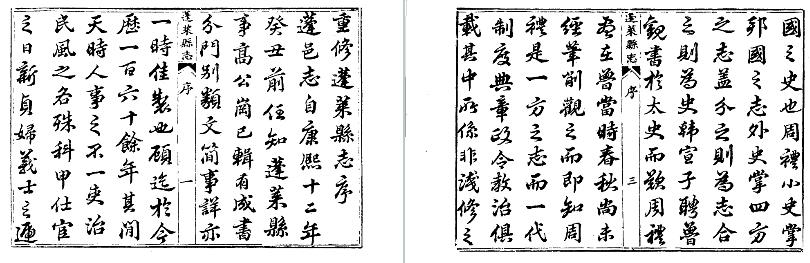 重修蓬萊縣志序
蓬邑志自康熙十二年
癸丑前任知蓬萊縣
事高公崗已輯有成書
分門別類文簡事詳亦
蓬萊縣志
序
一
一時佳製也顧迄於今
歷一百六十餘年其間
天時人事之不一吏治
民風之各殊科甲仕宦
之日新貞婦義士之遞
國之史也周禮小史掌
邦國之志外史掌四方
之志蓋分之則為志合
之則為史韓宣子聘魯
觀書於太史而歎周禮
蓬萊縣志
序
三
盡在魯當時春秋尚未
經筆削觀之而即知周
禮是一方之志而一代
制度典章政令教治俱
載其中所係非淺修之